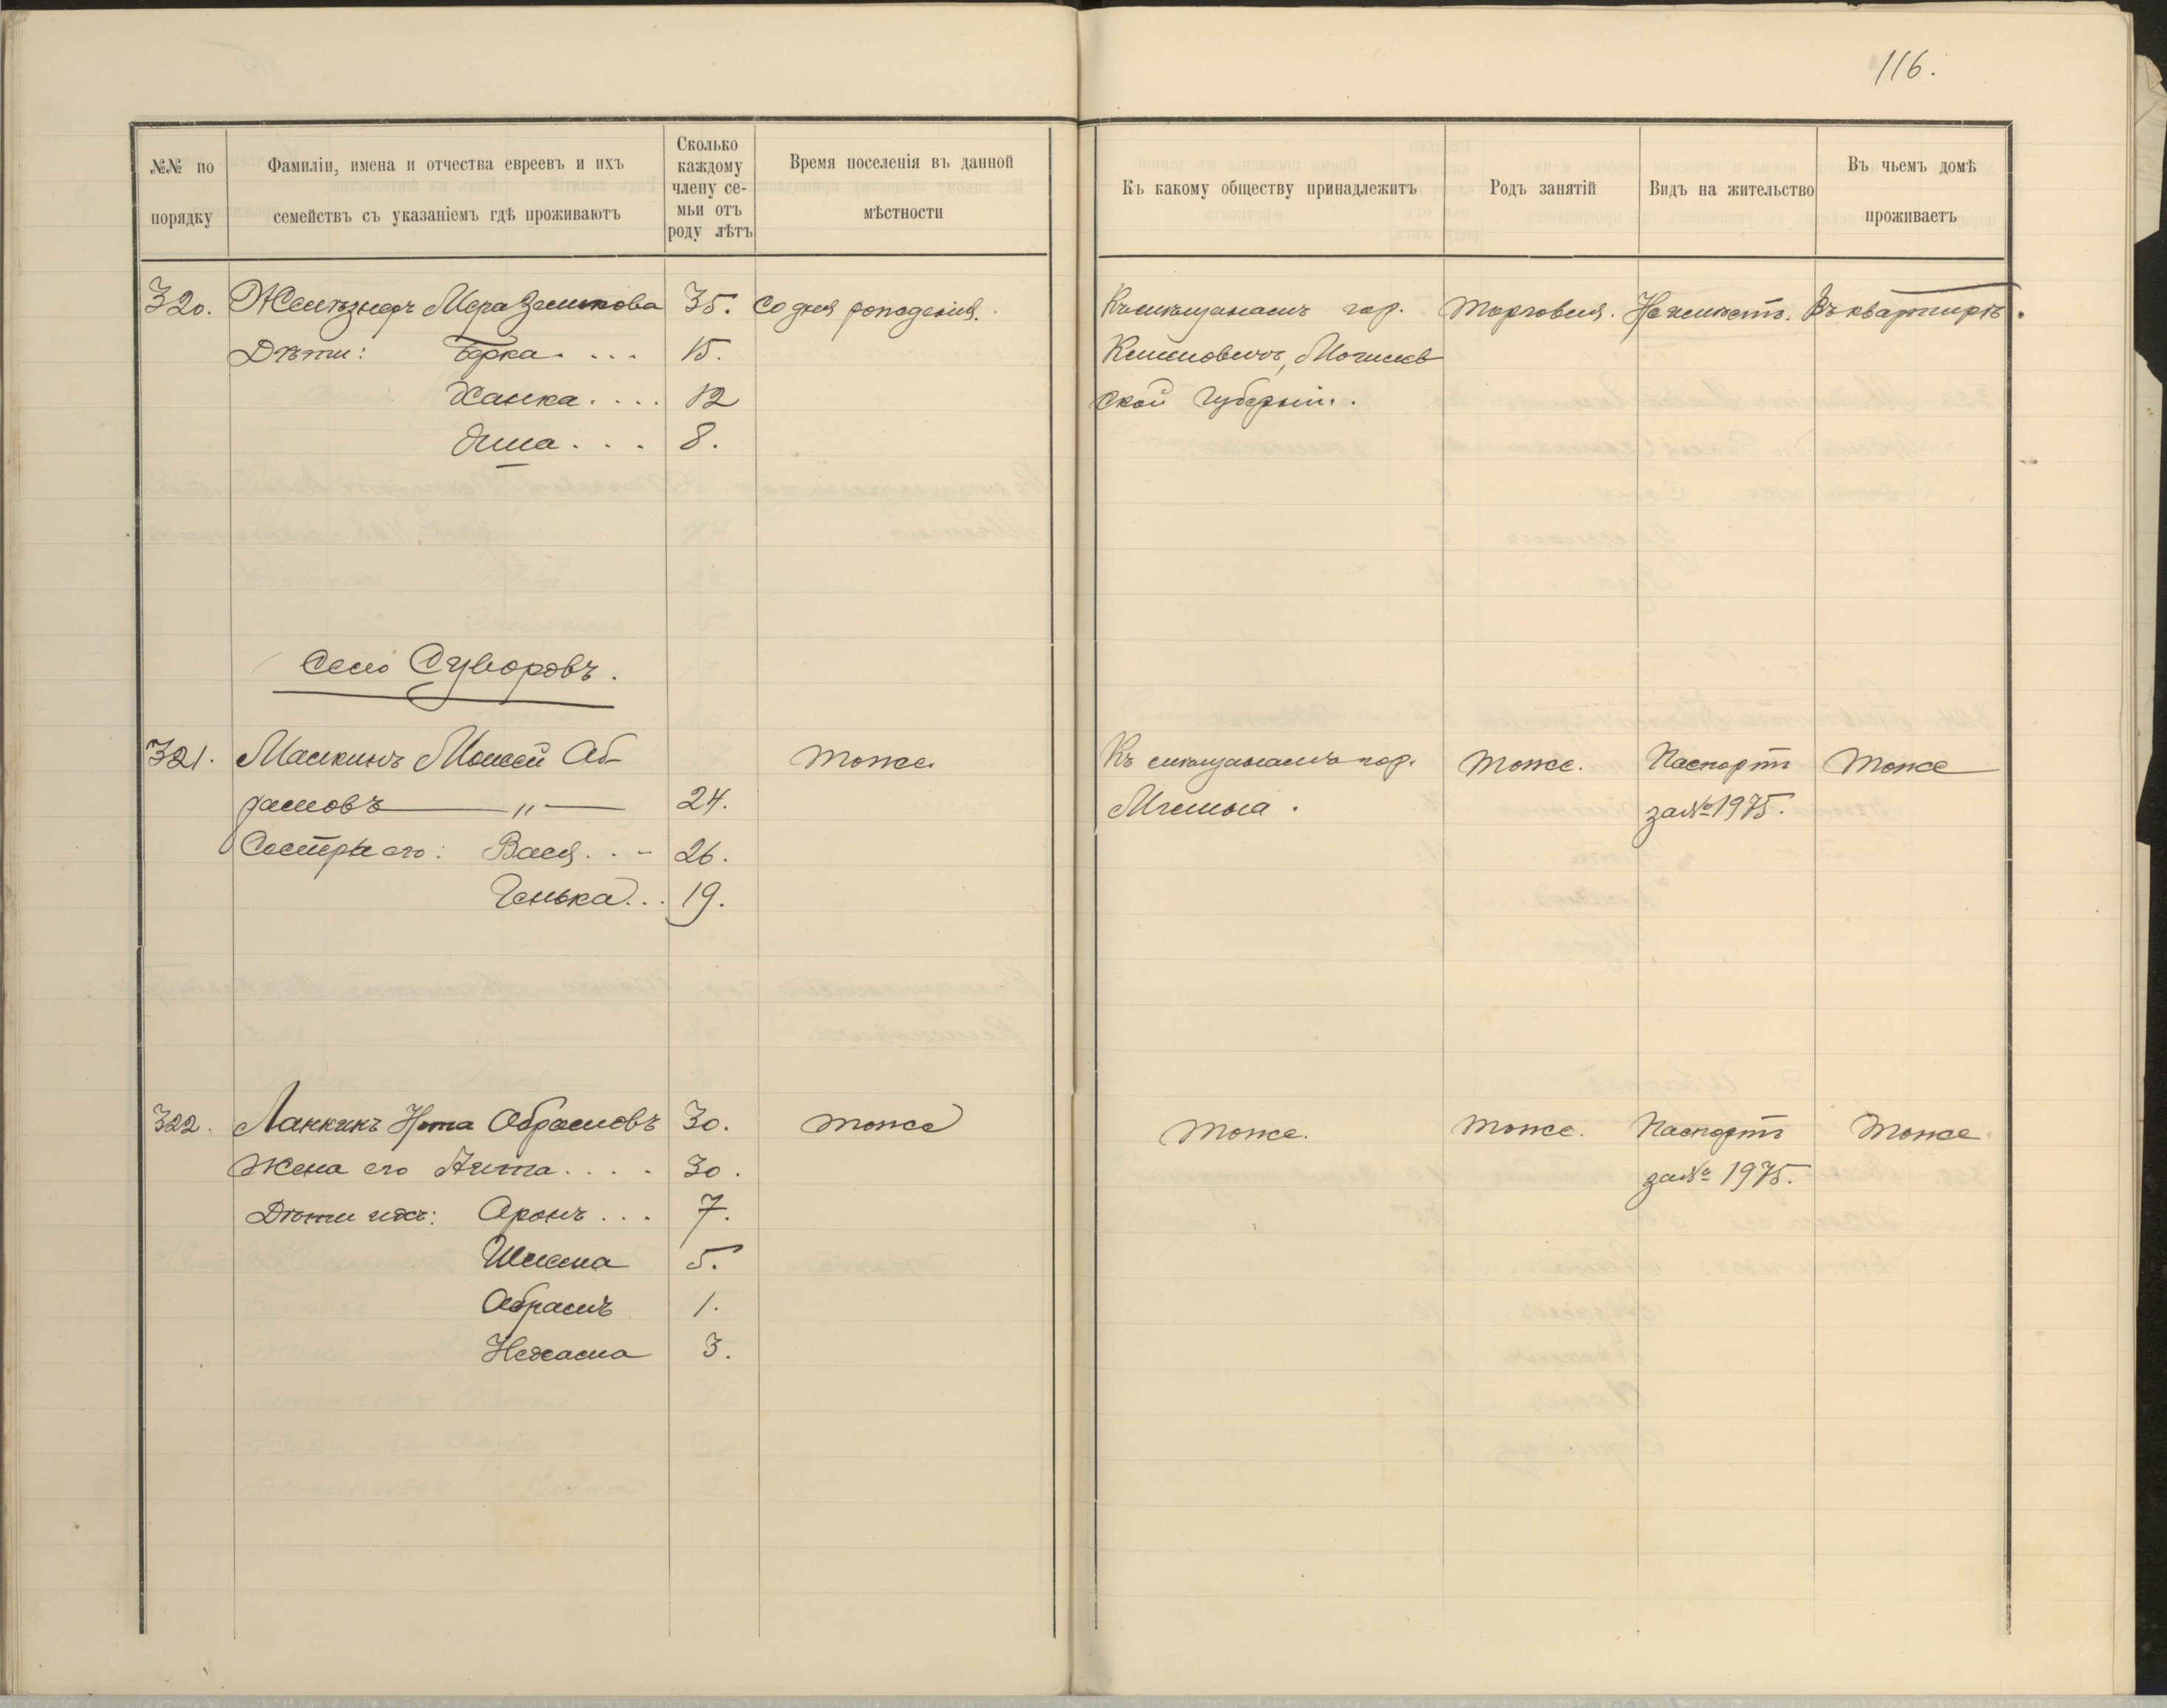 116.
№№ по порядку
Фамиліи, имена и отчества евреевъ и ихъ семействъ съ указаніемъ гдѣ проживаютъ
Сколько каждому члену семьи отъ роду лѣтъ
Время поселенія въ данной мѣстности
Къ какому обществу принадлежитъ
Родъ занятій
Видъ на жительство
Въ чьемъ домѣ проживаетъ
320. Желѣзнеръ Мера Зеликова 35. Со дня рожденія. Къ мѣщанамъ гор. Торговля. Неимѣетъ. Въ квартирѣ.
Дѣти: Берка.... 15. Климовичъ, Могилев
Ханка.... 12 ской Губерніи.
Дина... 8.
Село Суворовъ.
321. Малкинъ Мовсей Аб- Тоже. Къ мѣщанамъ гор. Тоже. Паспортъ Тоже
рамовъ — „ — 24. Мглина. за № 1975.
Сестры его: Вася.. - 26.
Генька... 19.
322. Ланкинъ Нота Абрамовъ 30. Тоже Тоже. Тоже. Паспортъ Тоже
Жена его .... 30. за № 1975.
Дѣти ихъ: Аронъ... 7.
Шлема 5.
Абрамъ 1.
Нехама 3.